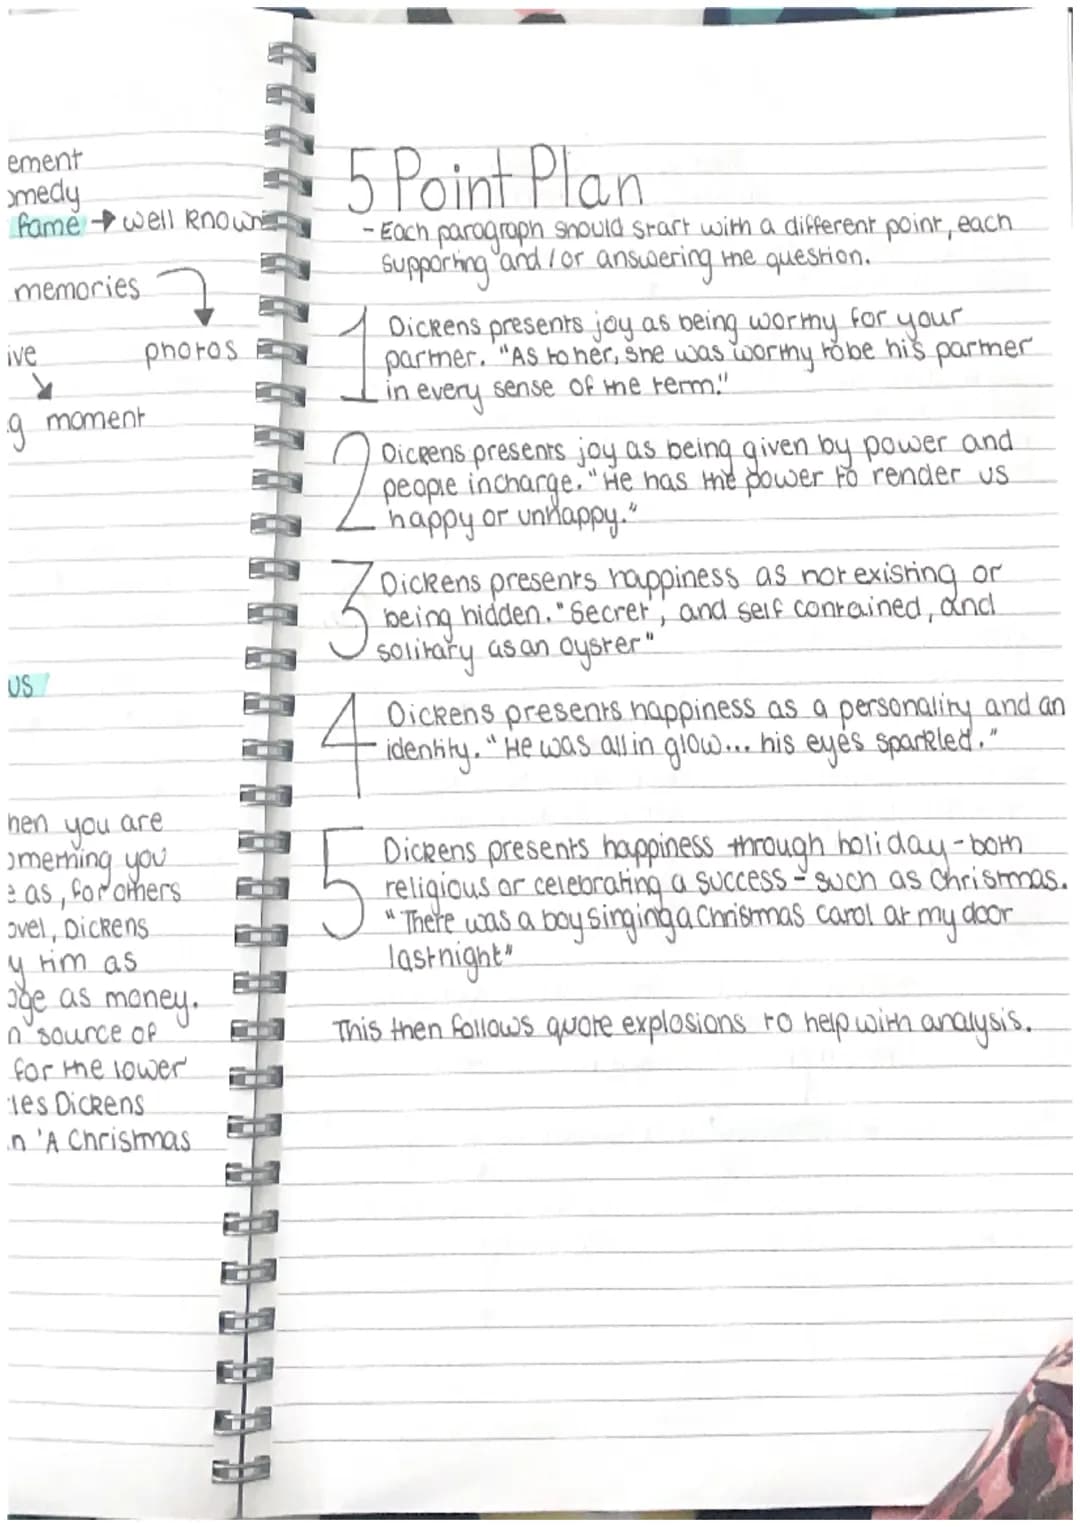 ement
omedy
fame → well known
memories
ive
photos
g moment
us
hen you are
omething you
e as, for others
ovel, Dickens
y tim as
oge as money.
n source of
for the lower
les Dickens
n 'A Christmas
5 Point Plan
- Each paragraph should start with a different point, each
supporting and / or answering the question.
1 Dickens presents joy as being worthy for your
partner. "As to her, she was worthy to be his partner
in every sense of the term."
2 Dickens presents joy as being given by power and
people incharge. "He has the power to render us
happy or unhappy."
3 Dickens presents happiness as not existing or
being hidden. "Secret, and self contained, and
solitary as an oyster"
4 Dickens presents happiness as a personality and an
identity. "He was all in glow... his eyes sparkled."
5 Dickens presents happiness through holiday - both
religious or celebrating a success - such as Christmas.
"There was a boy singing a Christmas carol at my door
last night"
This then follows quote explosions to help with analysis.